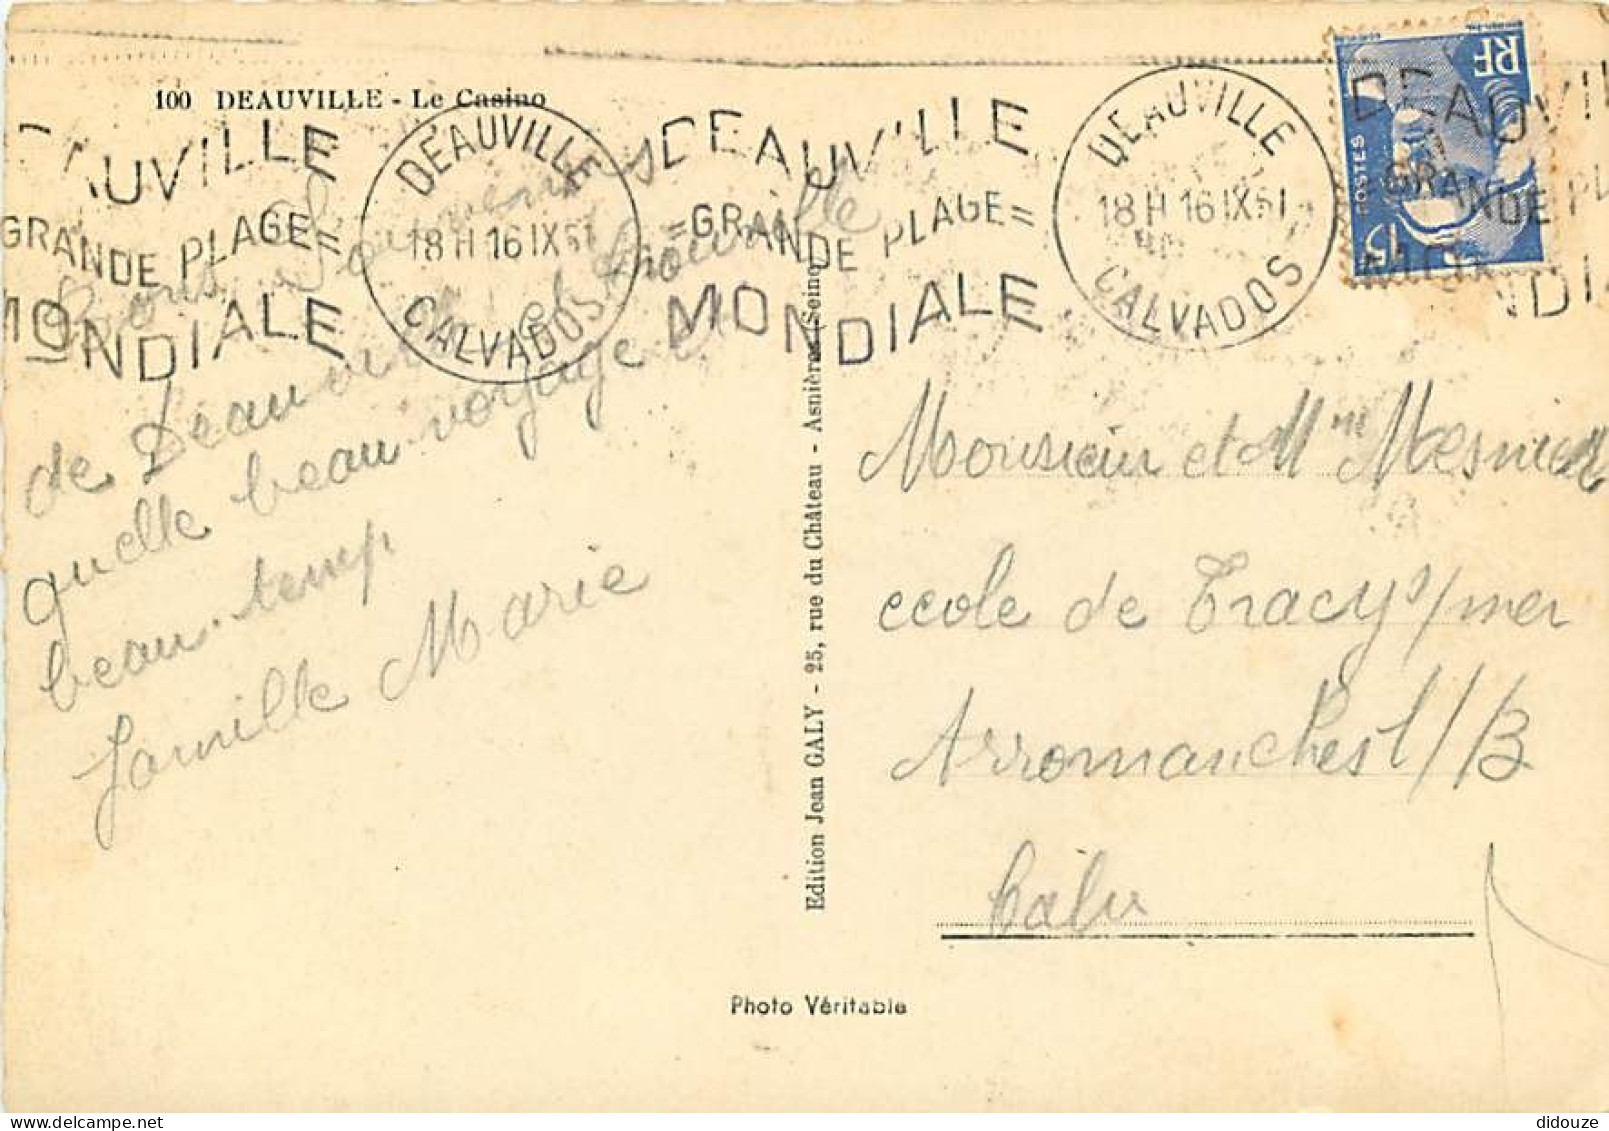 100 DEAUVILLE - Le Casino
DEAUVILLE
=GRANDE PLAGE=
MONDIALE
DEAUVILLE
18 H 16 IX 51
CALVADOS
DEAUVILLE
=GRANDE PLAGE=
MONDIALE
DEAUVILLE
18 H 16 IX 51
CALVADOS
DEAUVIL
GRANDE PL
NDIA
RF
POSTES
15F
Bons Souvenirs
de Deauville et Trouville
quelle beau voyage et
beau temp
famille Marie
Edition Jean GALY - 25, rue du Château - Asnières (Seine)
Monsieur et Mme Mesnier
ecole de Tracy s/mer
Arromanches l/B
Calv
Photo Véritable
didouze